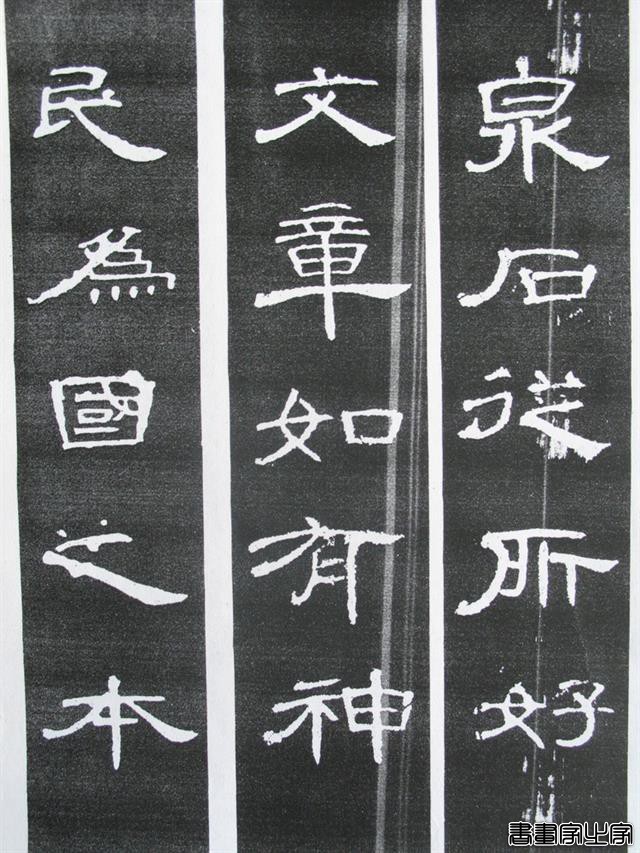 泉石從所好
文章如有神
民為國之本
書畫家之家